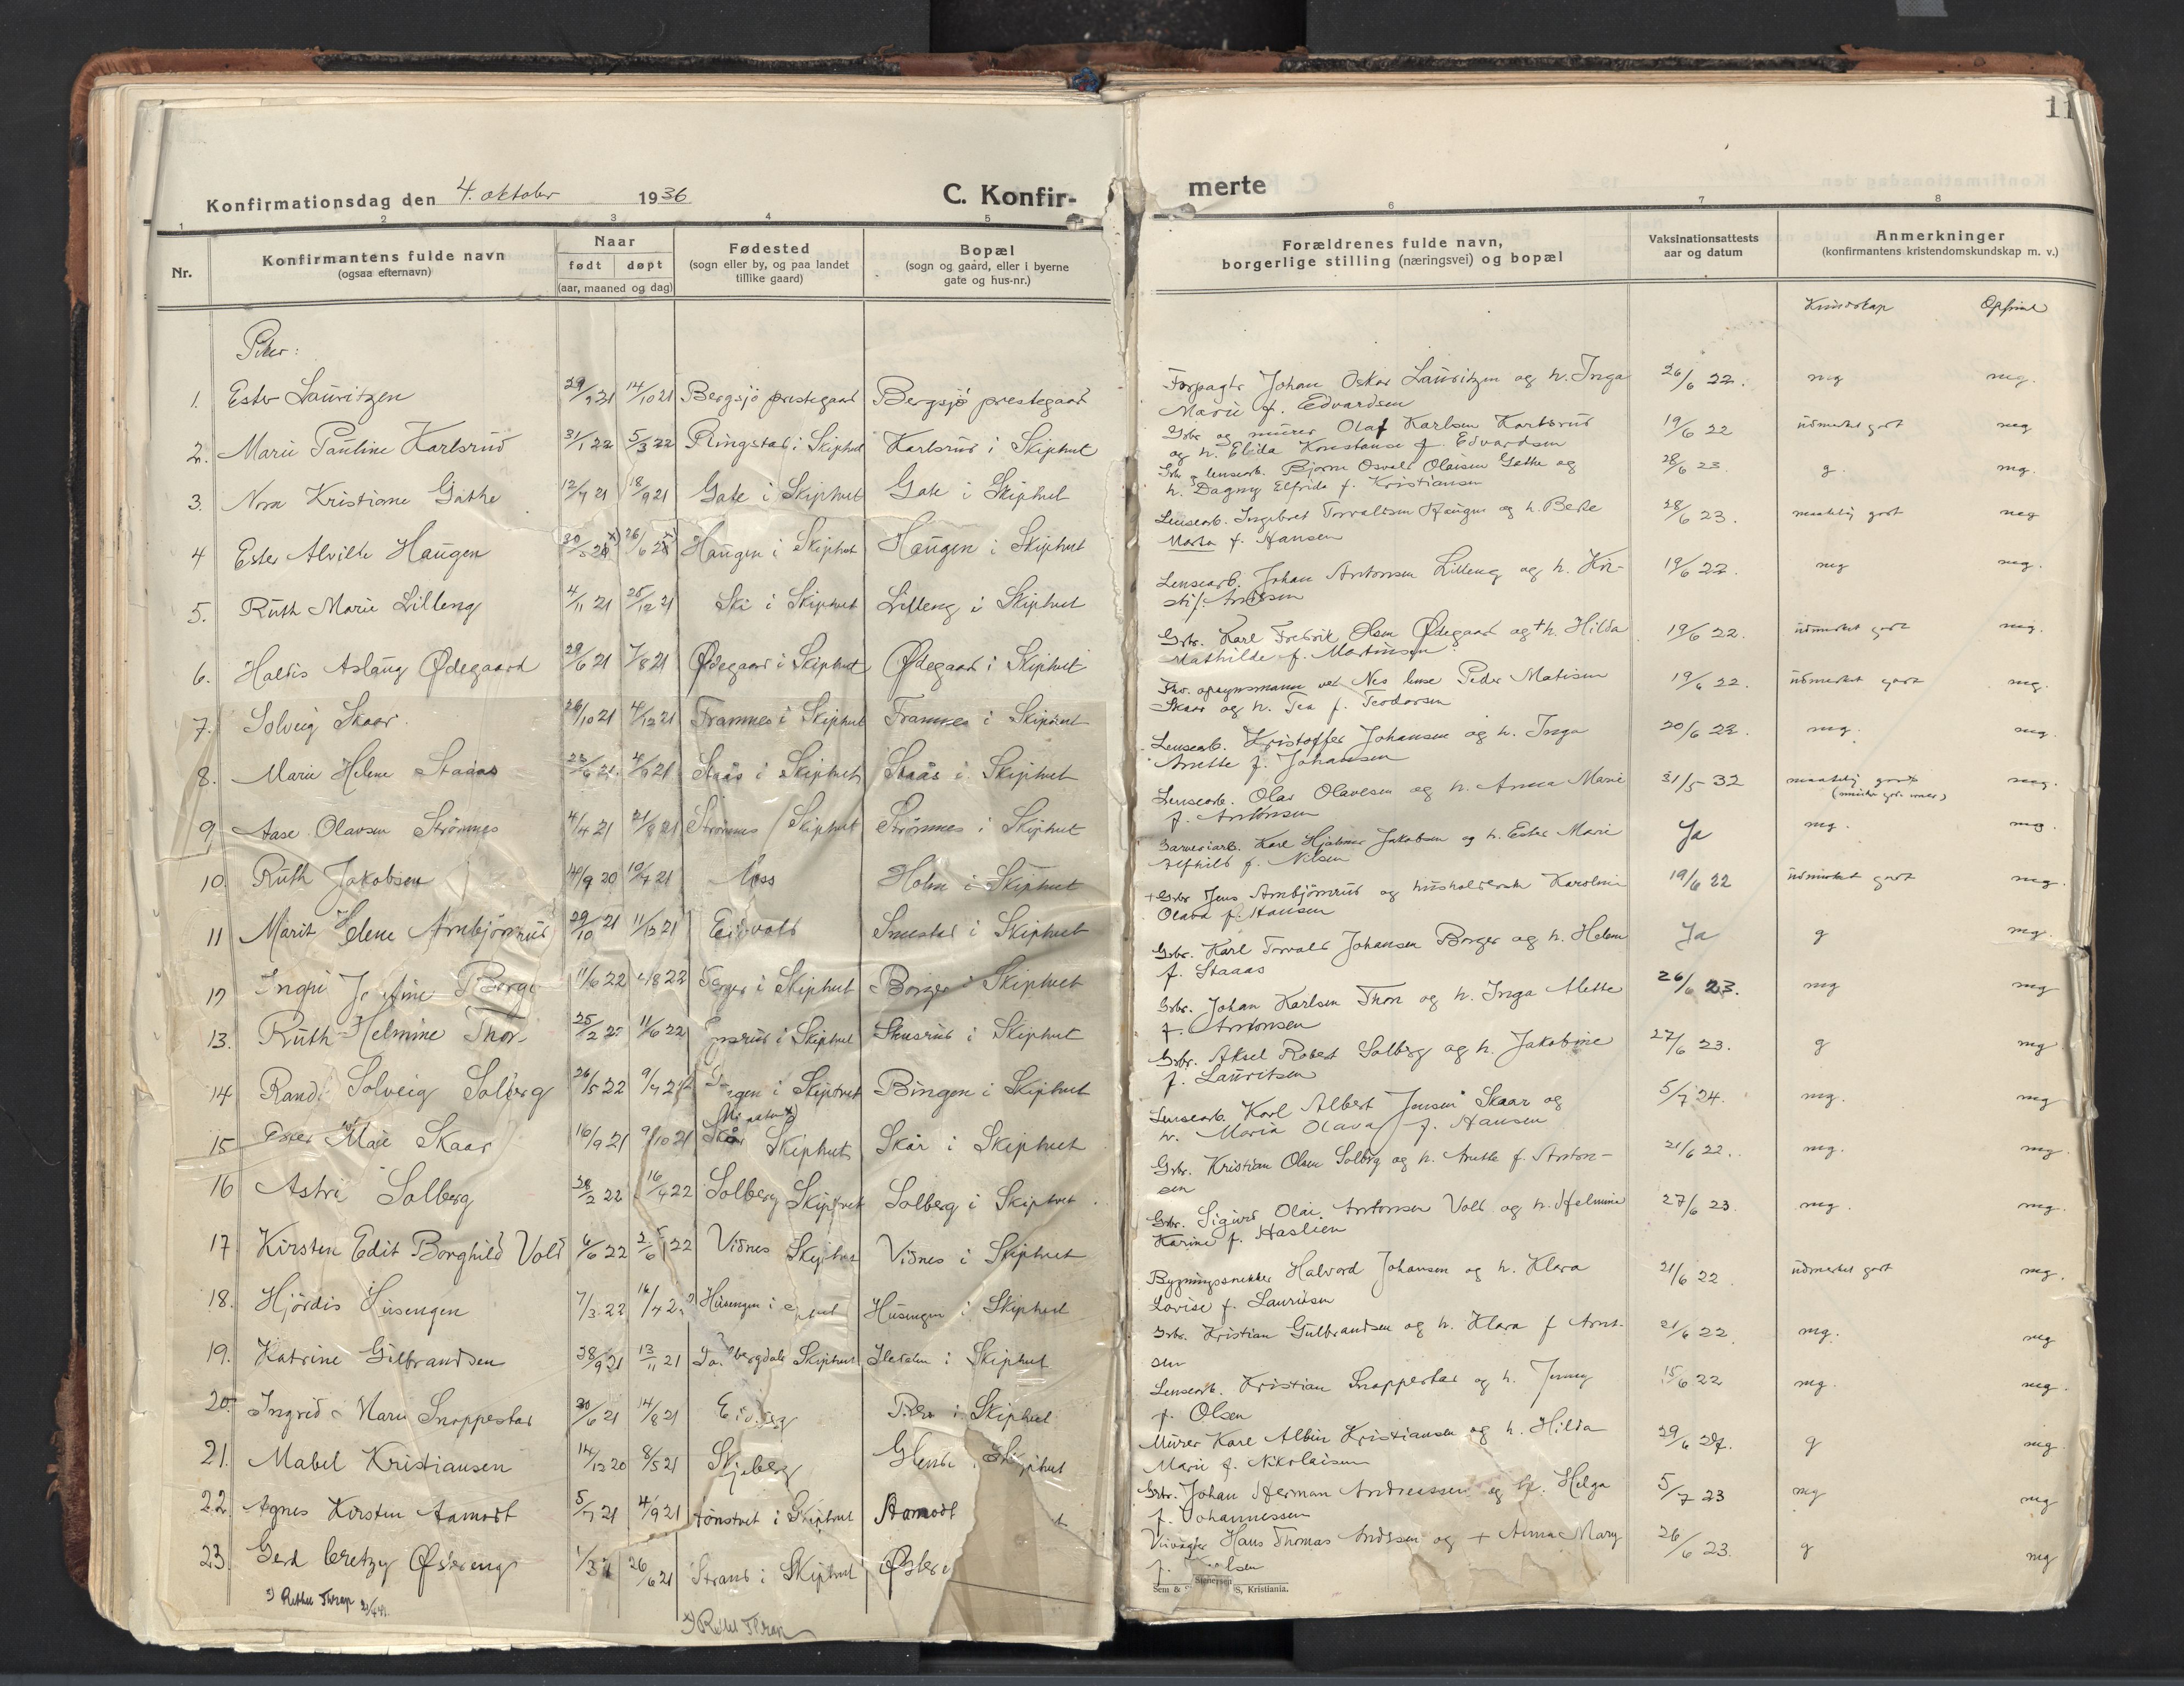 11
Konfirmationsdag den 4. oktober 1936
C. Konfir-
merte
1 2 3 4 5 6 7 8
Nr.
Konfirmantens fulde navn
(ogsaa efternavn)
Naar
født døpt
(aar, maaned og dag)
Fødested
(sogn eller by, og paa landet
tillike gaard)
Bopæl
(sogn og gaard, eller i byerne
gate og hus-nr.)
Forældrenes fulde navn,
borgerlige stilling (næringsvei) og bopæl
Vaksinationsattests
aar og datum
Anmerkninger
(konfirmantens kristendomskundskap m. v.)
Kundskap
Piker:
1. Ester Lauritzen 29/9 21 14/10 21 Bergsjø prestegaard Bergsjø prestegaard
Forpagter Johan Oskar Lauritzen og h. Inga 26/6 22. mg mg.
Marie f. Edvardsen
2. Marie Pauline Karlsrud 31/1 22 5/3 22 Ringstad i Skiptvet Karlsrud i Skiptvet
Gbr. og murer Olaf Karlsen Karlsrud 19/6 22 udmerket godt mg
og h. Elida Konstanse f. Edvardsen
3. Nora Kristiane Gathe 12/7 21 18/9 21 Gate i Skiptvet Gate i Skiptvet
Gbr og lensearb. Bjarne Osvald Olaisen Gathe og 28/6 23. g. mg.
h. Dagny Elfrida f. Kristiansen
4 Ester Alvilde Haugen 26/6 Haugen i Skiptvet Haugen i Skiptvet
Lensearb. Ingebret Torvaldsen Haugen og h. Berte 28/6 23. maatelig godt mg
Marta f. Hansen
5. Ruth Marie Lilleng 4/11 21 25/12 21 Ski i Skiptvet Lilleng i Skiptvet
Lensearb. Johan Antonsen Lilleng og h. Kri- 19/6 22. mg mg.
6. Haldis Aslaug Ødegaard 29/6 21 7/8 21 Ødegaard i Skiptvet Ødegaard i Skiptvet
Gbr. Karl Fredrik Olsen Ødegaard og + h. Hilda 19/6 22. udmerket godt mg.
Mathilde f. Martinsen
7. Solveig Skaar. 26/10 21 4/12 21 Framnes i Skiptvet Framnes i Skiptvet
opsynsmann ved Nes lense Peder Matisen 19/6 22. udmerket godt mg.
Skaar og h. Tea f. Teodorsen
8. Marie Helene Staaas 23/6 21. Staas i Skiptvet Staas i Skiptvet
Lensearb. Kristoffer Johansen og h. Inga 20/6 22. mg. mg.
Anette f. Johansen
9. Aase Olavsen Strömnes 4/4 21 21/8 21 Strömnes i Skiptvet Strömnes i Skiptvet
Lensearb. Olav Olavesen og h. Anna Marie 31/5 32 maatelig godt mg.
f. Antonsen
10. Ruth Jakobsen 14/9 20 10/4 21 Moss Holm i Skiptvet
Garveriarb. Karl Hjalmar Jakobsen og h. Ester Marie Ja mg. mg.
Alfhild f. Nilsen
11 Marit Helene Arnbjörnrud 29/10 21 11/12 21 Eidvold Smestad i Skiptvet
+ Gbr Jens Arnbjörnrud og Karoline 19/6 22 udmerket godt mg.
Olava f. Hansen
12 11/6 22 i Skiptvet Borger i Skiptvet
Gbr. Karl Torvald Johansen Borger og h. Helene Ja g mg.
f. Staaas
13. Ruth Helmine Thor 25/2 11/6 22 i Skiptvet i Skiptvet
Gbr. Johan Karlsen Thon og h. Inga Alette 26/6 23. mg mg
f. Antonsen
14 Randi Solveig Solberg 26/5 22 9/7 i Skiptvet Bingen i Skiptvet
Gbr. Aksel Robert Solberg og h. Jakobine 27/6 23. g mg
f. Lauritsen
15 Skaar 16/9 21 9/10 21 Skår Skiptvet Skår i Skiptvet
Lensearb. Karl Albert Jensen Skaar og 5/7 24. mg. mg
h. Maria Olava f. Hansen
16 Astri Solberg 28/2 22 16/4 22 Solberg Skiptvet Solberg i Skiptvet
Gbr. Kristian Olsen Solberg og h. Anette f. Anton- 21/6 22. mg. mg.
sen
17. Kirsten Edit Borghild Vold 6/6 22 Vidnes Skiptvet Vidnes i Skiptvet
Gbr. Sigurd Olai Antonsen Vold og h. Helmine 27/6 23. mg. mg.
Karine f. Haslien
18. Hjördis Husengen 7/3 22 Husengen i Husengen i Skiptvet
Bygningssnekker Halvord Johansen og h. Klara 21/6 22. udmerket godt mg.
Lovise f. Lauritsen
19. Katrine Gulbrandsen 28/9 21 13/11 21 Skiptvet i Skiptvet
Gbr. Kristian Gulbrandsen og h. Klara f Arnt- 21/6 22. mg. mg
sen
20. Ingrid Marie Snoppestad 20/6 21 14/8 21 Eidsberg i Skiptvet
Lensearb. Kristian Snoppestad og h. Jenny 15/6 22 mg. mg.
f. Olsen
21. Mabel Kristiansen 14/12 20 8/5 21 Skjeberg
Murer Karl Albin Kristiansen og h. Hilda g mg.
Marie f. Nikolaisen
22. Agnes Kirsten Aamodt 5/7 21 4/9 21 i Skiptvet Aamodt
Gbr. Johan Herman Andreassen og h. Helga 5/7 23 mg mg
f. Johannessen
23. Gerd Østereng 26/6 21 Strand i Skiptvet
Hans Thomas og + Anna Mary 26/6 23. g mg
Sem & Stenersen A/S, Kristiania.